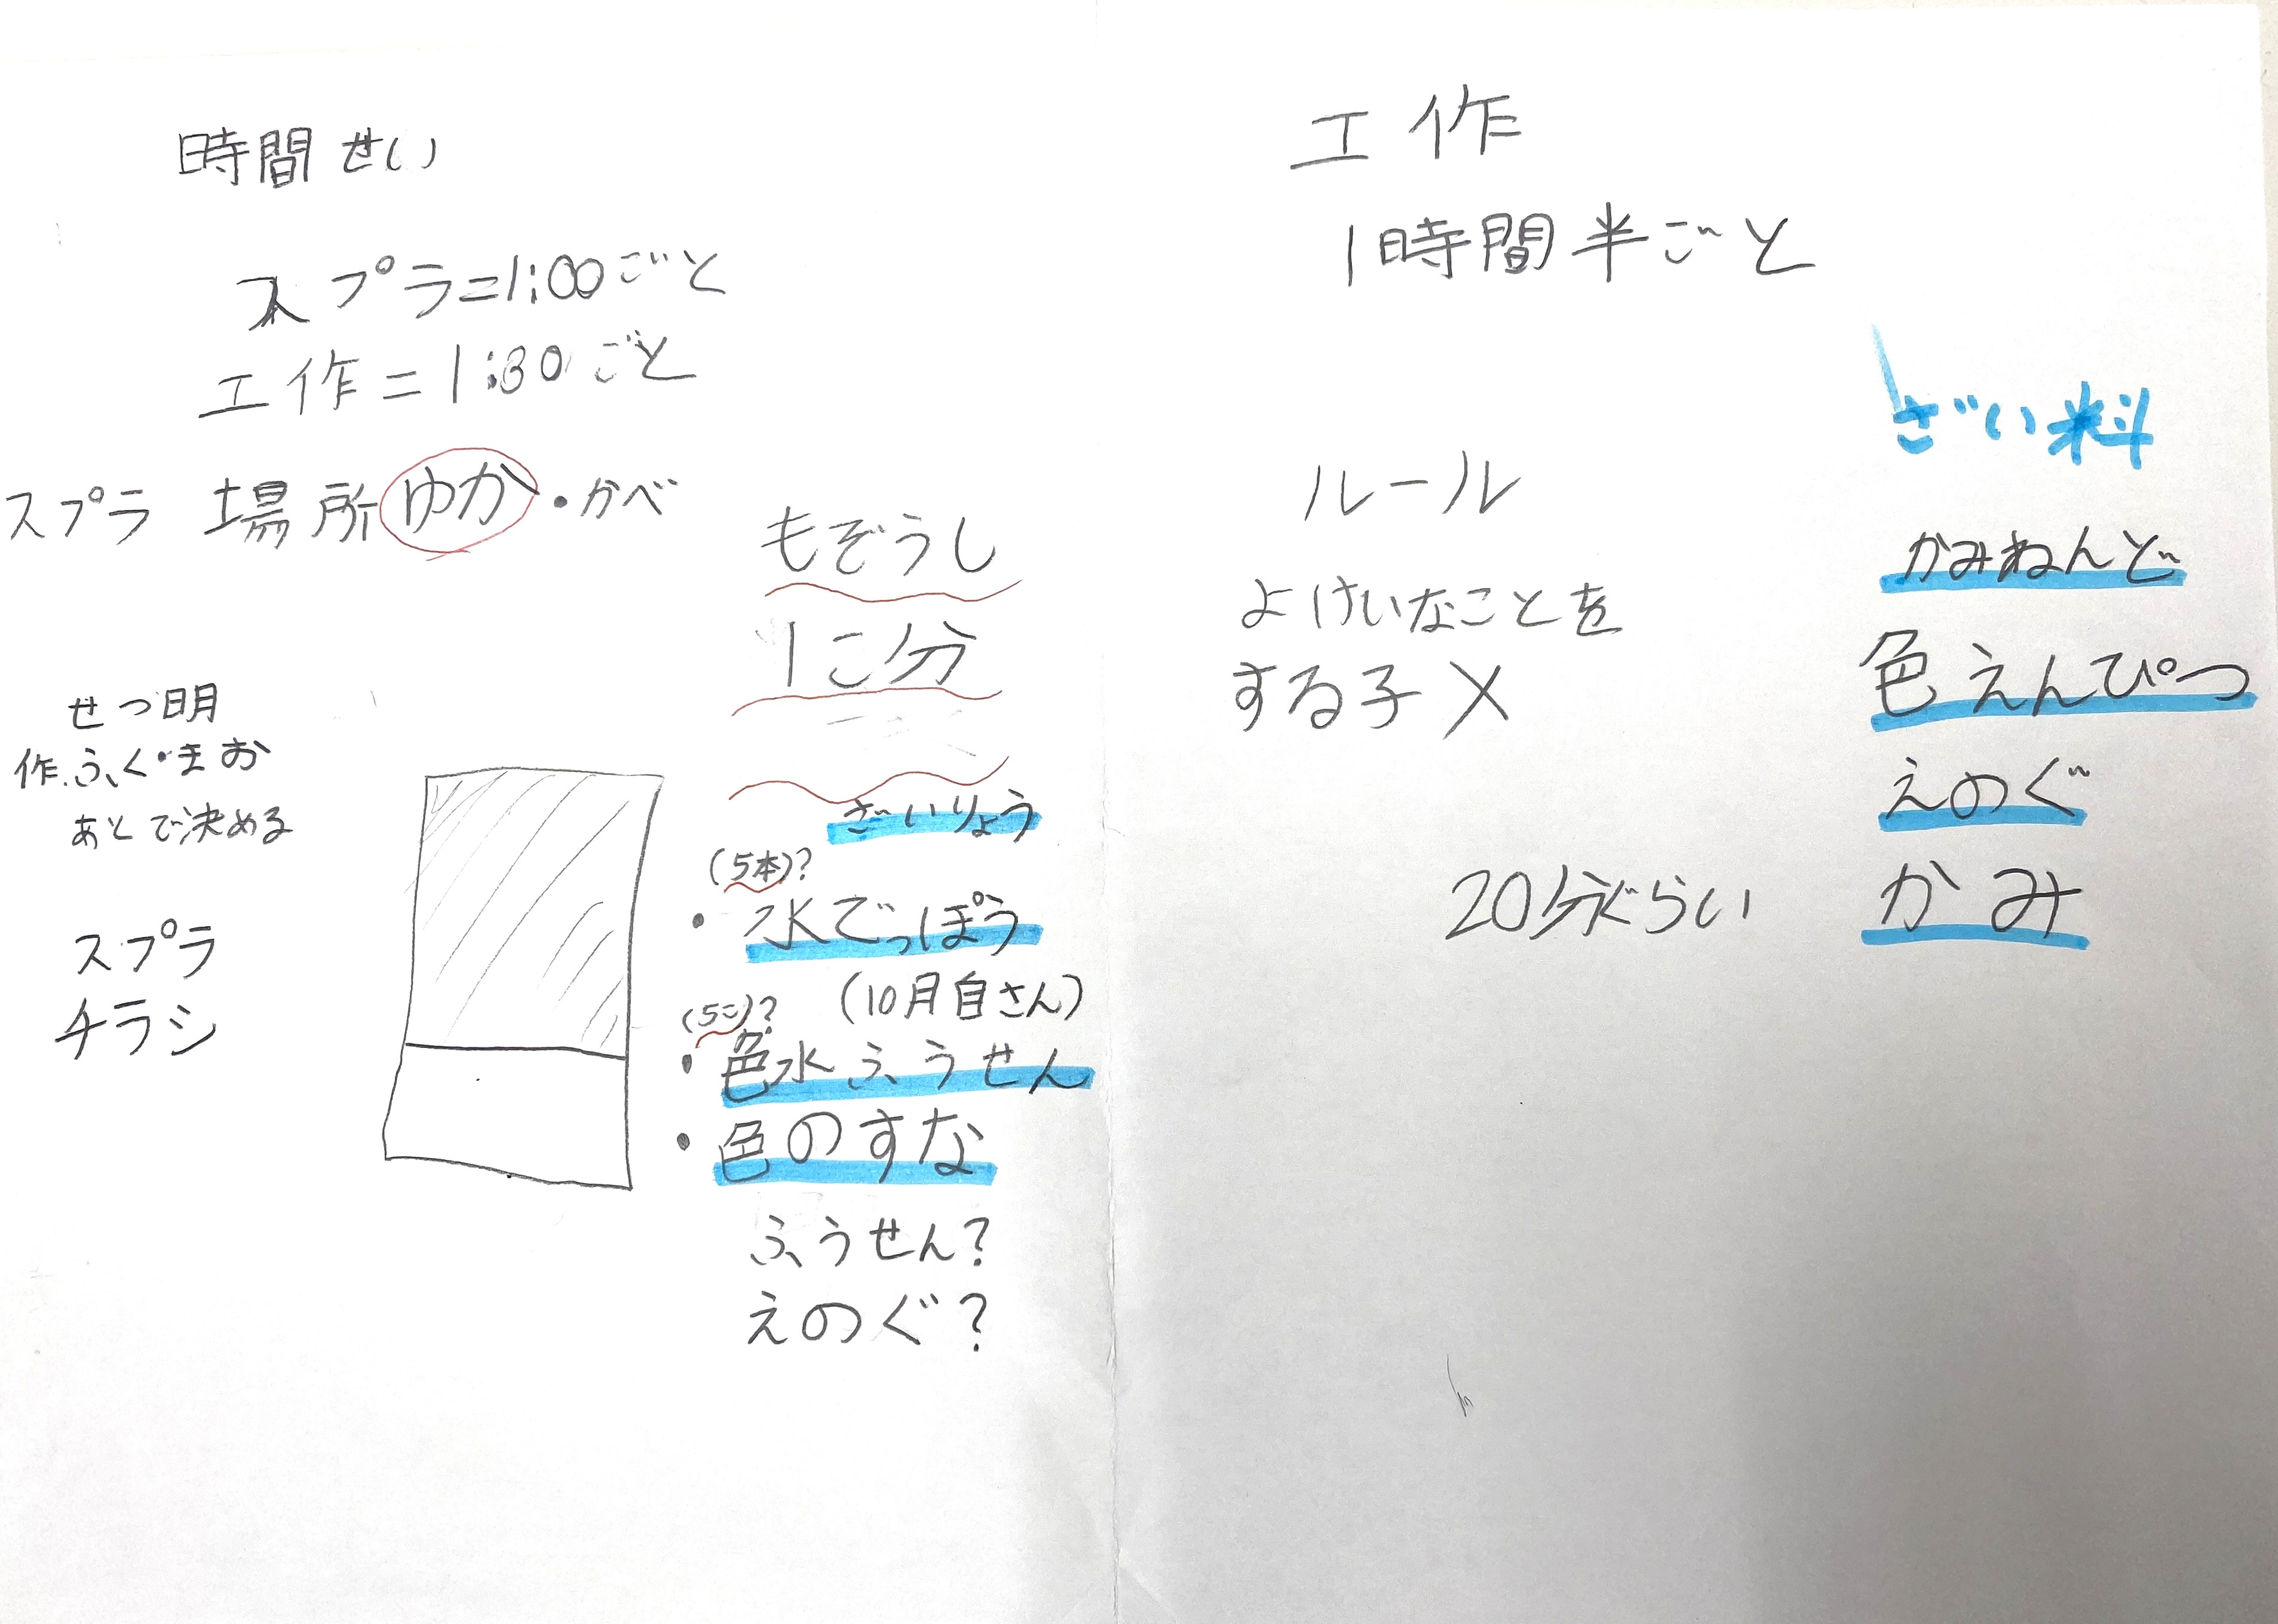 時間せい
スプラ=1:00ごと
工作=1:30ごと
スプラ 場所 ゆか・かべ
もぞうし
1こ分
せつ明
作.ふく・まお
あとで決める
スプラ
チラシ
ざいりょう
(5本)?
・水でっぽう
(10月自さん)
(5こ)?
・色水ふうせん
・色のすな
ふうせん?
えのぐ?
工作
1時間半ごと
ルール
よけいなことを
する子 X
20分ぐらい
ざい料
かみねんど
色えんぴつ
えのぐ
かみ